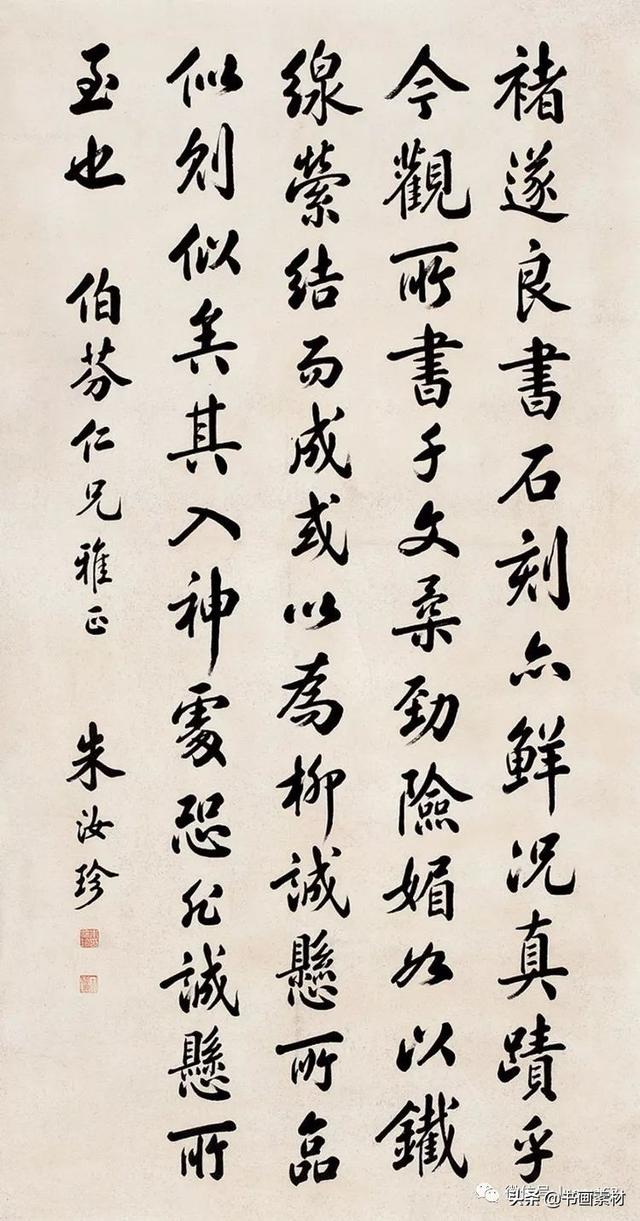 褚遂良書石刻亦鮮況真蹟乎
今觀所書千文柔勁險媚如以鐵
線縈結而成或以為柳誠懸所臨
似則似矣其入神處恐非誠懸所
至也 伯芬仁兄雅正 朱汝珍
头条 @书画素材